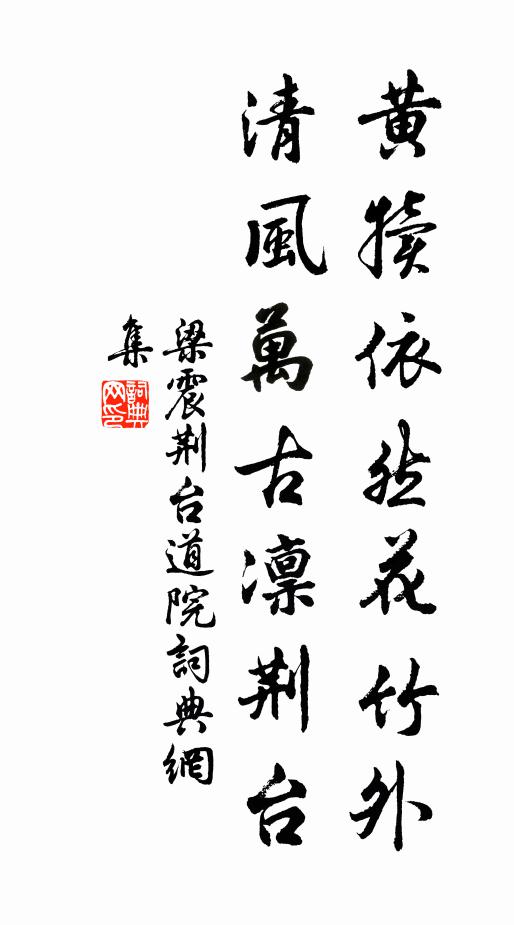 黃犢依然花竹外
清風萬古凜荆台
梁震荆台道院詞典網
集
詞典
网印